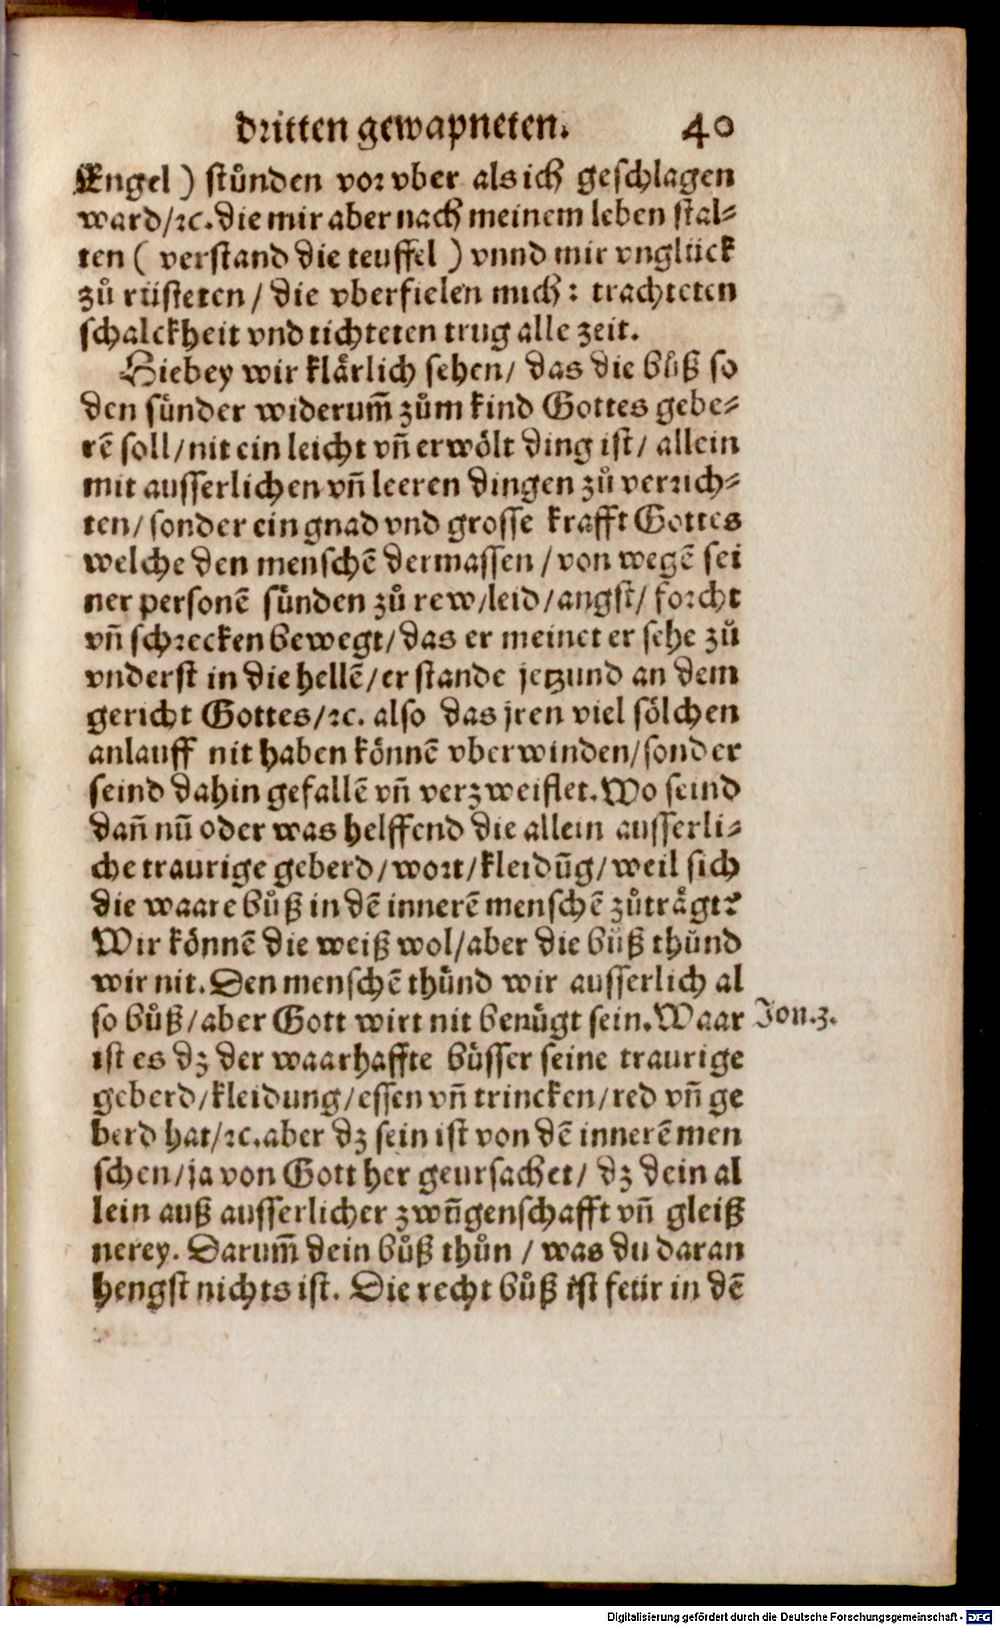 dritten gewapneten. 40
Engel ) stůnden vor vber als ich geschlagen
ward/ꝛc. die mir aber nach meinem leben stal⸗
ten ( verstand die teuffel ) vnnd mir vnglück
zů rüsteten / die vberfielen mich: trachteten
schalckheit vnd tichteten trug alle zeit.
Hiebey wir klårlich sehen/ das die bůß so
den sünder widerum̃ zům kind Gottes gebe⸗
rẽ soll/nit ein leicht vñ erwölt ding ist/ allein
mit ausserlichen vñ leeren dingen zů verrich⸗
ten/sonder ein gnad vnd grosse krafft Gottes
welche den menschẽ dermassen /von wegẽ sei
ner personẽ sünden zů rew/leid/angst/ forcht
vñ schrecken bewegt/das er meinet er sehe zů
vnderst in die hellẽ/er stande jetzund an dem
gericht Gottes/ꝛc. also das jren viel sölchen
anlauff nit haben könnẽ vberwinden/sonder
seind dahin gefallẽ vñ verzweiflet. Wo seind
dañ nũ oder was helffend die allein ausserli⸗
che traurige geberd/wort/kleidũg/weil sich
die waare bůß in dẽ innerẽ menschẽ zůträgt?
Wir könnẽ die weiß wol/aber die bůß thůnd
wir nit. Den menschẽ thůnd wir ausserlich al
so bůß/aber Gott wirt nit benügt sein. Waar
Jon.3.
ist es dz der waarhaffte büsser seine traurige
geberd/kleidung/essen vñ trincken/red vñ ge
berd hat/ꝛc. aber dz sein ist von dẽ innerẽ men
schen/ja von Gott her geursachet/ dz dein al
lein auß ausserlicher zwũgenschafft vñ gleiß
nerey. Darum̃ dein bůß thůn / was du daran
hengst nichts ist. Die recht bůß ist feür in dẽ
Digitalisierung gefördert durch die Deutsche Forschungsgemeinschaft - DFG